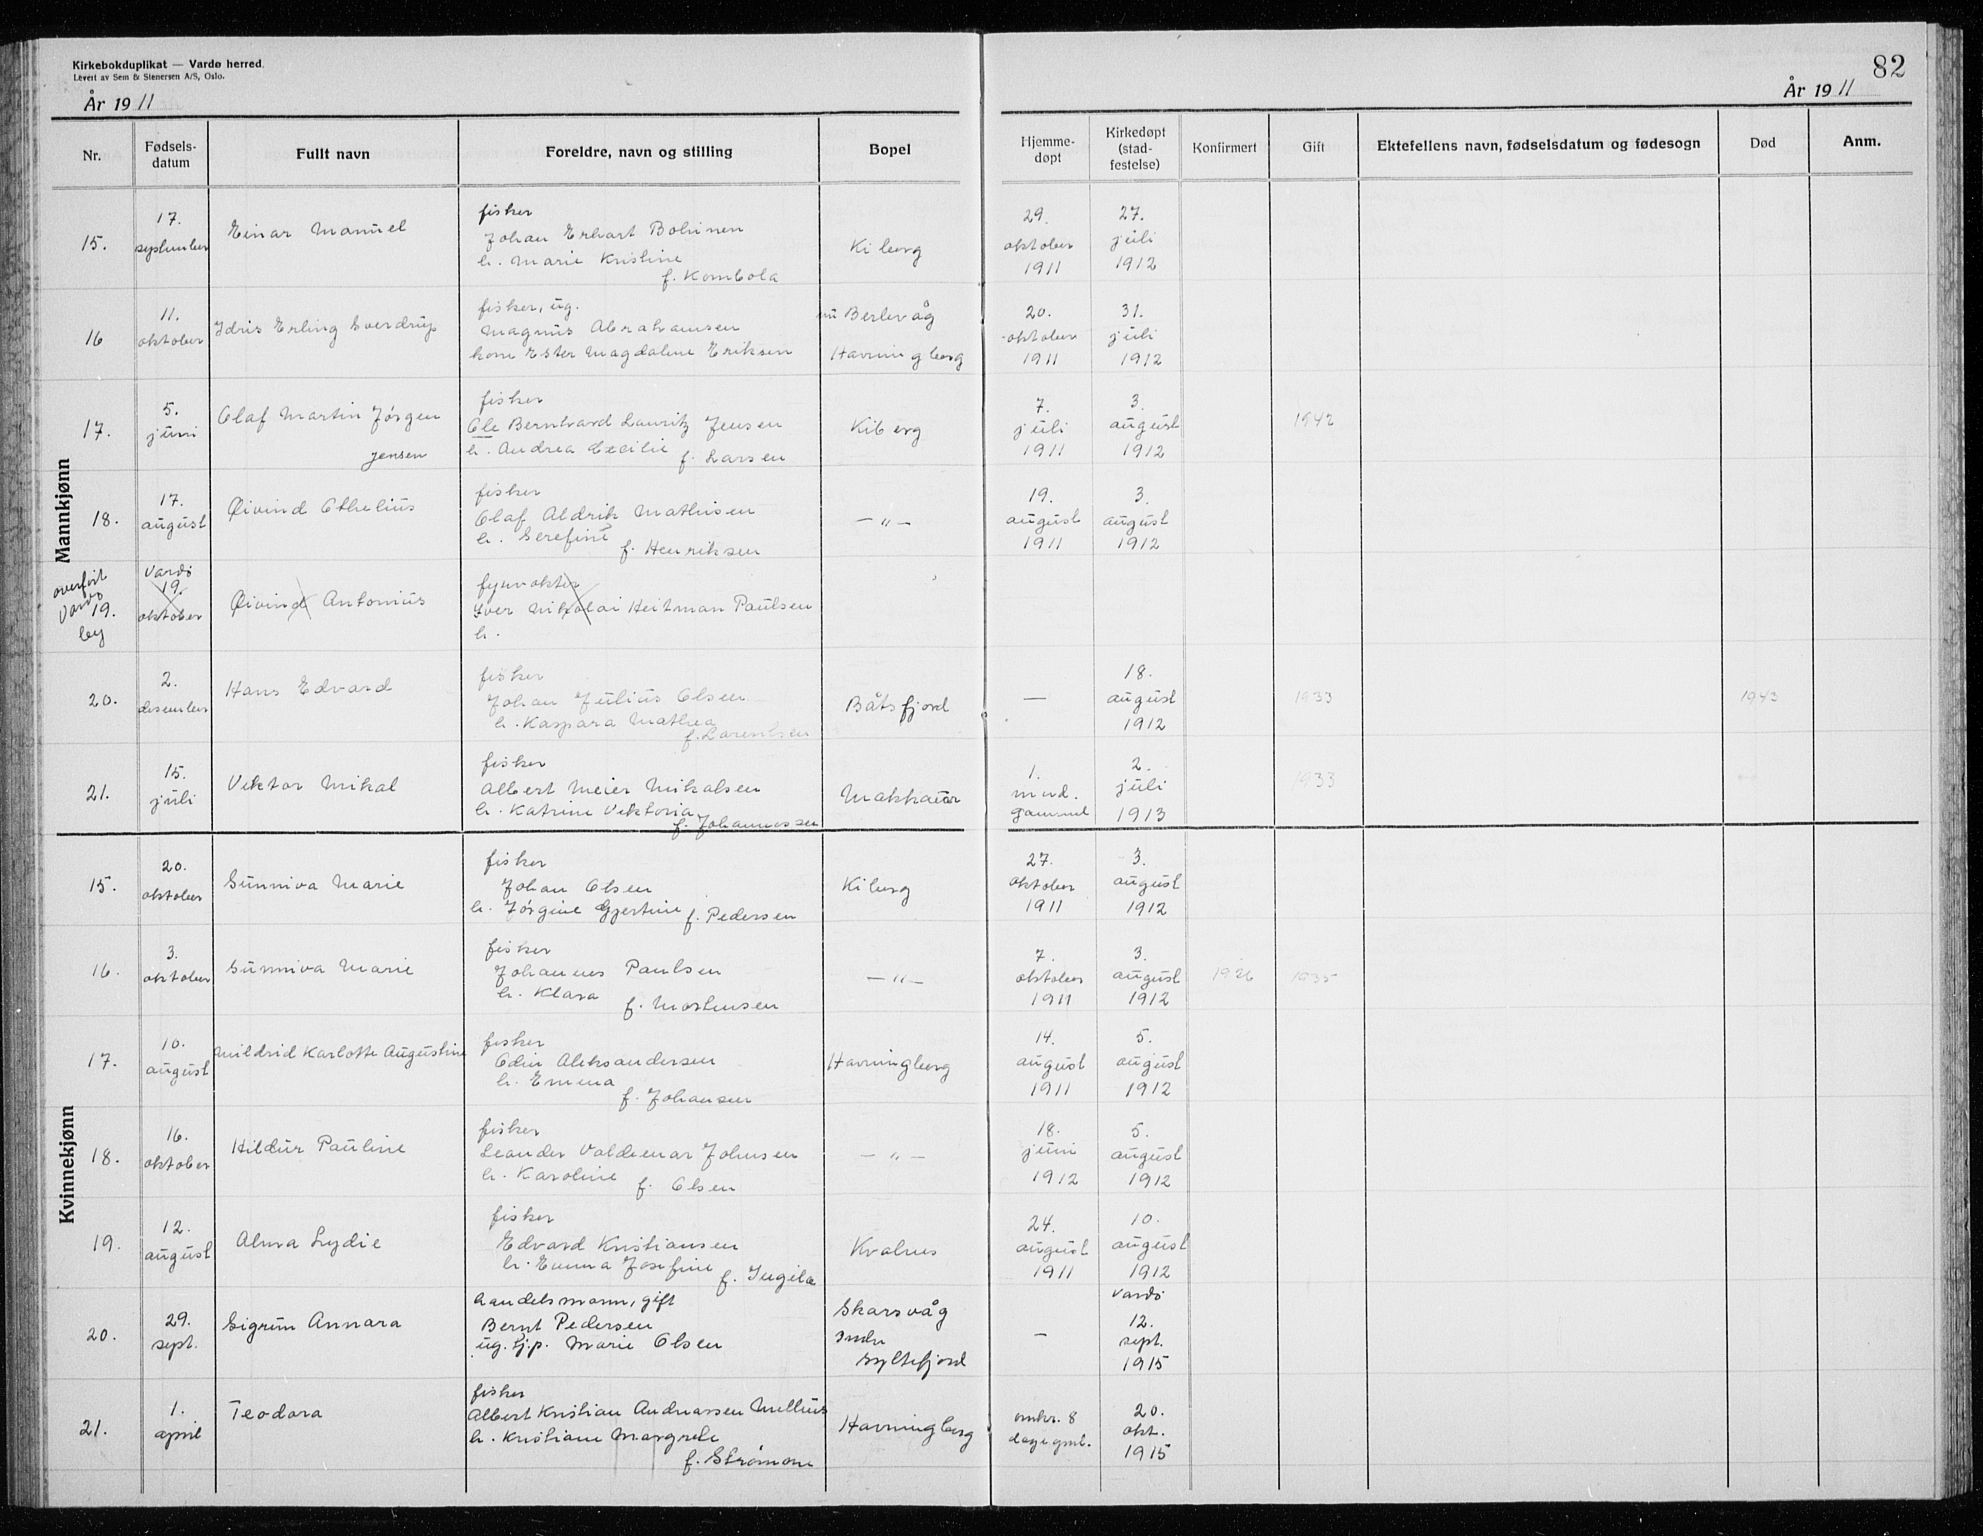 Kirkebokduplikat — Vardø herred.
Levert av Sem & Stenersen A/S, Oslo.
År 1911
82
År 1911
Nr.
Fødsels-
datum
Fullt navn
Foreldre, navn og stilling
Bopel
Hjemme-
døpt
Kirkedøpt
(stad-
festelse)
Konfirmert
Gift
Ektefellens navn, fødselsdatum og fødesogn
Død
Anm.
Mannkjønn
15.
17.
september
Einar Manuel
fisker
Johan Erhart Bohinen
h. Marie Kristine
f. Kombola
Kiberg
29.
oktober
1911
27.
juli
1912
16
11.
oktober
Idris Erling Sverdrup
fisker, ug.
Magnus Abrahamsen
Ester Magdalene Eriksen
nu Berlevåg
Havningberg
20.
oktober
1911
31.
juli
1912
17.
5.
juni
Olaf Martin Jørgen
Jensen
fisker
Ole Bernhard Lauritz Jensen
h. Andrea Cecilie
f. Larsen
Kiberg
7.
juli
1911
3.
august
1912
1942
18.
17.
august
Øivind Othelius
fisker
Olaf Aldrik Mathisen
h. Serefine
f. Henriksen
— " —
19.
august
1911
3.
august
1912
overført
Vardø
19.
by
Vardø
19.
oktober
Øivind Antonius
fyrvokter
Iver Nikolai Heitman Paulsen
h.
20.
2.
desember
Hans Edvard
fisker
Johan Julius Olsen
h. Kaspara Mathea
f. Larentsen
Båtsfjord
—
18.
august
1912
1933
1943
21.
15.
juli
Viktor Mikal
fisker
Albert Meier Mikalsen
h. Katrine Viktoria
f. Johannessen
Makkaur
1.
mnd.
gammel
2.
juli
1913
1933
Kvinnekjønn
15.
20.
oktober
Sunniva Marie
fisker
Johan Olsen
h. Jørgine Gjertine f. Pedersen
Kiberg
27.
oktober
1911
3.
august
1912
16.
3.
oktober
Sunniva Marie
fisker
Johannes Paulsen
h. Klara
f. Mortensen
— " —
7.
oktober
1911
3.
august
1912
1926
1935
17.
10.
august
Mildrid Karlotte Augustine
fisker
Odin Aleksandersen
h. Emma
f. Johansen
Havningberg
14.
august
1911
5.
august
1912
18.
16.
oktober
Hildur Pauline
fisker
Leander Valdemar Johnsen
h. Karoline
f. Olsen
— " —
18.
juni
1912
5.
august
1912
19.
12.
august
Alma Lydie
fisker
Edvard Kristiansen
h. Emma Josefine
f. Ingila
Kvalnes
24.
august
1911
10.
august
1912
20.
29.
sept.
Sigrun Annara
handelsmann, gift
Bernt Pedersen
ug. tj.p. Marie Olsen
Skarsvåg
Indre
Syltefjord
—
Vardø
12.
sept.
1915
21.
1.
april
Teodora
fisker
Albert Kristian Andreassen
h. Kristiane Margrete
f. Strømone
Havningberg
omkr. 8
dage gml.
20.
okt.
1915